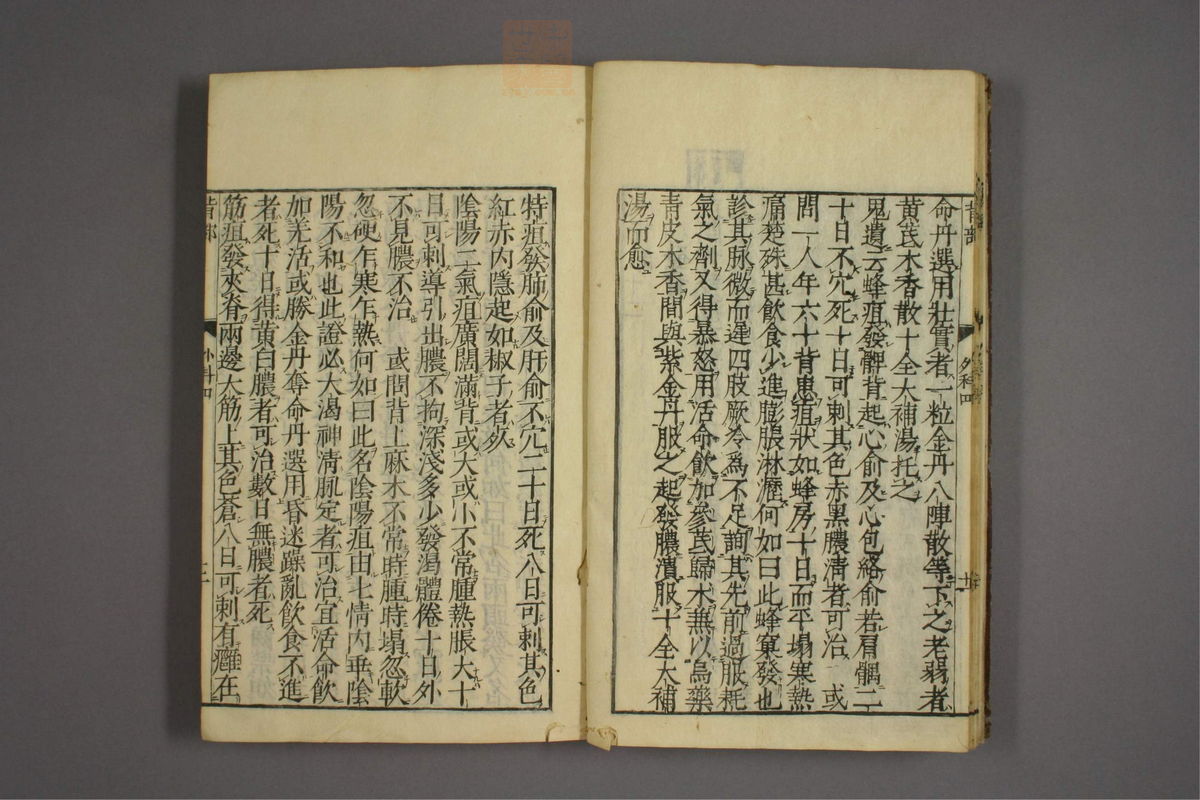 背部
外科四
十一
命丹選用壯實者一粒金丹八陣散等下之老弱者
黄芪木香散十全大補湯托之
鬼遺云蜂疽發髀背起心俞及心包絡俞若肩髃二
十日不穴死十日可刺其色赤黒膿清者可治　或
問一人年六十背患疽狀如蜂房十日而平塌寒熱
痛楚殊甚飲食少進膨脹淋瀝何如曰此蜂窠發也
診其脉微而遲四肢厥冷爲不足詢其先前過服耗
氣之劑又得暴怒用活命飲加參芪歸木兼以烏藥
青皮木香間與紫金丹服之起發膿潰服十全大補
湯而愈
特疽發肺俞及肝俞不穴二十日死八日可刺其色
紅赤内隱起如椒子者欸
陰陽二氣疽廣闊滿背或大或小不常腫熱脹大十
日可刺導引出膿不拘深淺多少發渴體倦十日外
不見膿不治　或問背上麻木不常時腫時塌忽軟
忽硬乍寒乍熱何如曰此名陰陽疽由七情内乖陰
陽不和也此證必大渴神清脉定者可治宜活命飲
加羌活或勝金丹奪命丹選用昏迷躁亂飲食不進
者死十日得黄白膿者可治數日無膿者死
筋疽發夾脊兩邊大筋上其色蒼八日可刺有癰在
背部
外科四